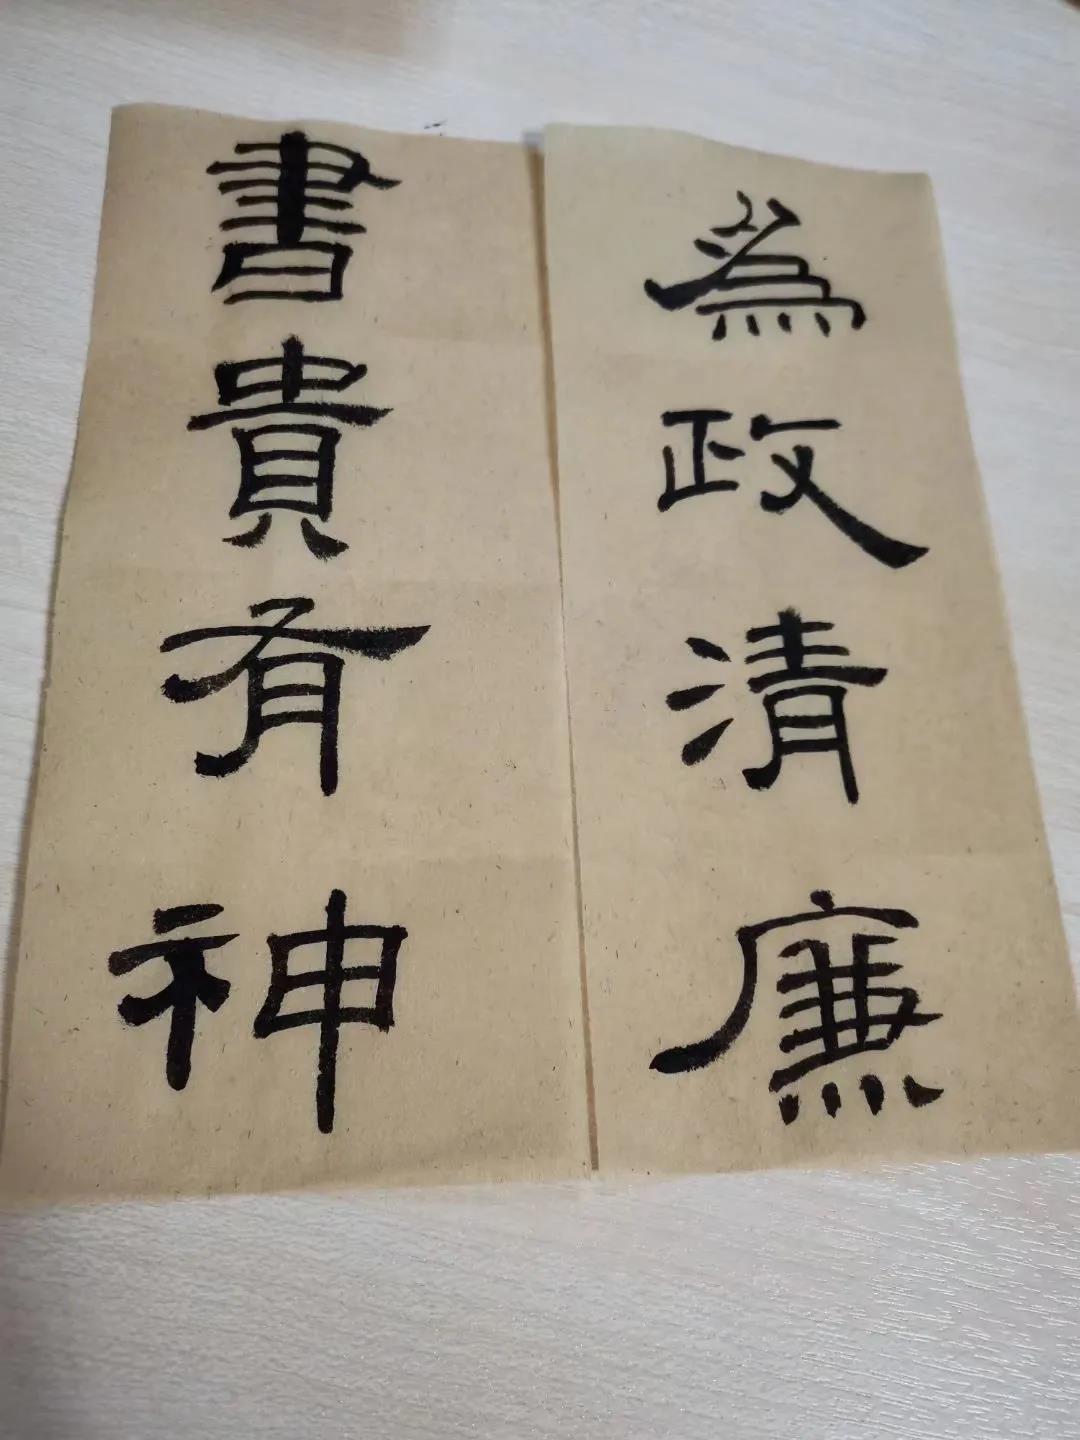 為政清廉
書貴有神